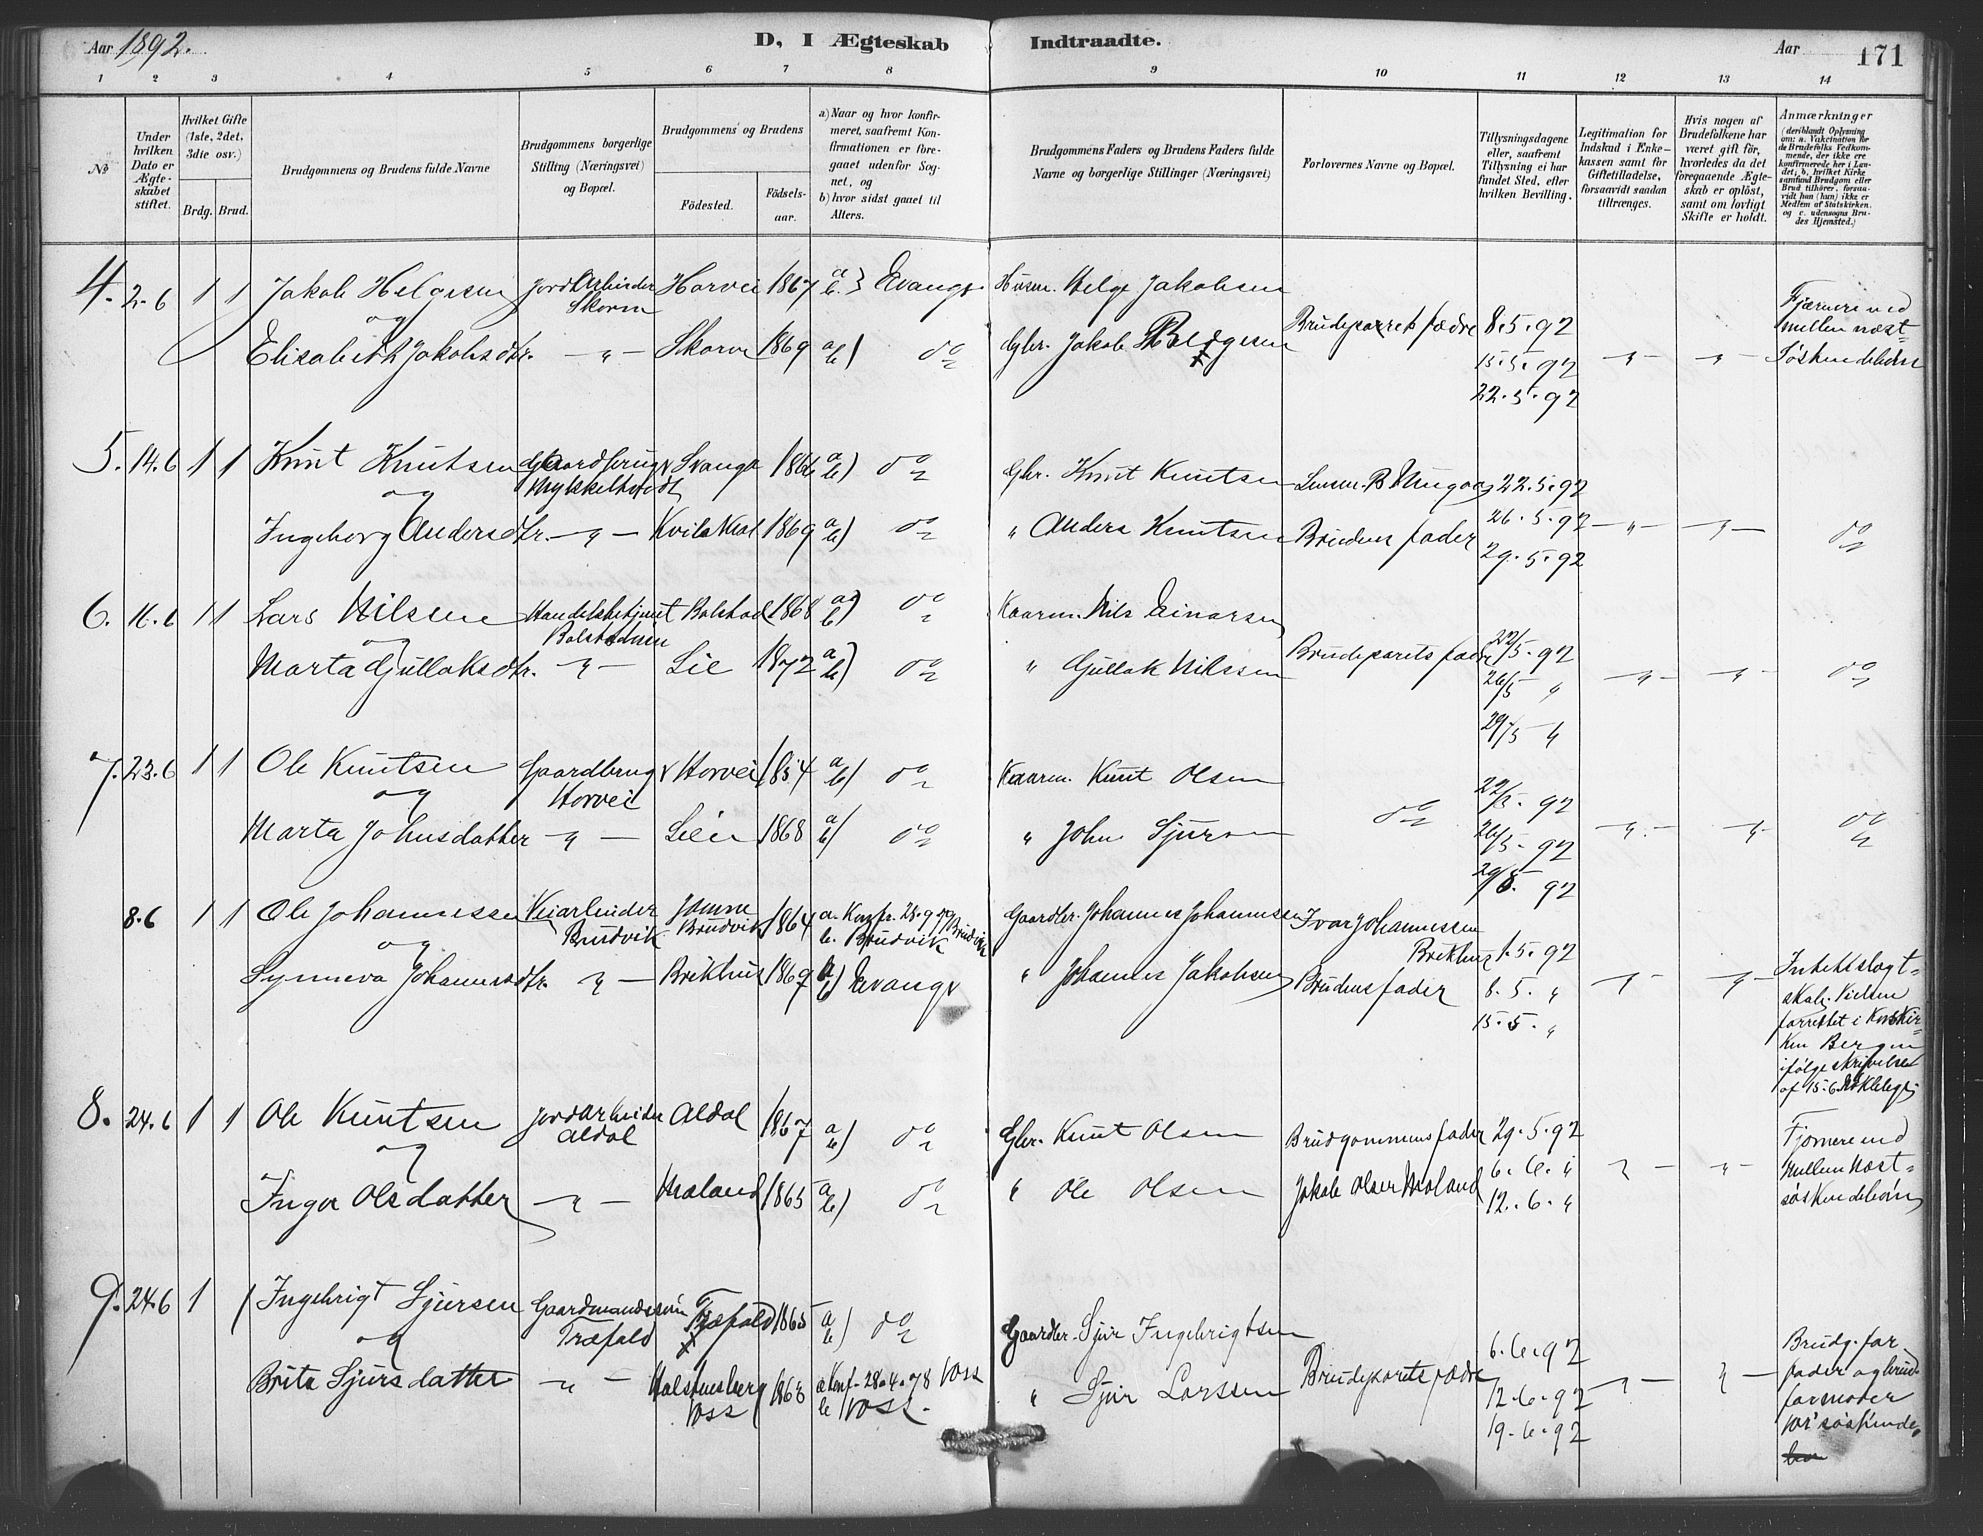 Aar 1892. D, I Ægteskab Indtraadte. Aar 171
1 2 3 4 5 6 7 8 9 10 11 12 13 14
№
Under hvilken Dato er Ægteskabet stiftet.
Hvilket Gifte (1ste, 2det, 3die osv.)
Brdg. Brud.
Brudgommens og Brudens fulde Navne
Brudgommens borgerlige Stilling (Næringsvei) og Bopæl.
Brudgommens og Brudens
Fødested. Fødselsaar.
a) Naar og hvor konfirmeret, saafremt Konfirmationen er foregaaet udenfor Sognet, og
b) hvor sidst gaaet til Alters.
Brudgommens Faders og Brudens Faders fulde Navne og borgerlige Stillinger (Næringsvei)
Forlovernes Navne og Bopæl.
Tillysningsdagene eller, saafremt Tillysning ei har fundet Sted, efter hvilken Bevilling.
Legitimation for Indskud i Enkekassen samt for Giftetilladelse, forsaavidt saadan tiltrænges.
Hvis nogen af Brudefolkene har været gift før, hvorledes da det foregaaende Ægteskab er opløst, samt om lovligt Skifte er holdt.
Anmærkninger
(deriblandt Oplysning om: a. Vakcination for de Brudefolks Vedkommende, der ikke ere konfirmerede her i Landet; b. hvilket Kirkesamfund Brudgom eller Brud tilhører, forsaavidt han (hun) ikke er Medlem af Statskirken. og c. udensogns Brudes Hjemsted.)
4. 2-6 1 1 Jakob Helgesen Jordarbeider Skorve Horvei 1867 a b } Evanger Husm. Helge Jakobsen Brudeparrets fædre 8.5.92 Fjærnere end
og mellem næst-
Elisabeth Jakobsdtr. — " — Skorve 1869 a b) do Gbr. Jakob Helgesen 15.5.92 — " — — " — Søskendebørn
22.5.92
5. 14.6 1 1 Knut Knutsen Gaardbruger Mykkeltveidt Evanger 1866 a b) do Gbr. Knut Knutsen 22.5.92
og
Ingeborg Andersdtr. — " — 1869 a b) do " Anders Knutsen Brudens fader 26.5.92 — " — — " — do
29.5.92
6. 16.6 1 1 Lars Nilssen Handelsbetjent Bolstad 1868 a b) do Kaarm. Nils Einarsen Brudeparets fædre 22/5.92
og
Marta Gjullaksdtr. — " — Lie 1872 a b) do " Gjullak Nilssen 26/5 " — " — — " — do
29/5 "
7. 23.6 1 1 Ole Knutsen Gaardbruger Horvei Horvei 1854 a b) do Kaarm. Knut Olsen do 22/5. 92
og
Marta Johnsdatter — " — Lien 1868 a b) do " John Sjursen 26/5- 92 — " — — " — do
29/5. 92
8.6 1 1 Ole Johannessen Veiarbeider Brudvik Brudvik 1864 a. Konfr. 28.9.79 Brudvik b. Brudvik Gaardbr. Johannes Johannessen Ivar Johannessen Brekhus 1.5.92
og
Synneva Johannesdtr. — " — Brekhus 1869 a b) Evanger " Johannes Jakobsen Brudens fader 8.5. " — " — — " — Intet slægt-
15.5. " skab. Vielsen
forrettet i Korskir-
ken Bergen
ifølge skrivelse
af 15-6
8. 24.6 1 1 Ole Knutsen Jordarbeider Aldal Aldal 1867 a b) do Gbr. Knut Olsen Brudgommens fader 29.5.92 Fjernere end
og mellem næst-
Inger Olsdatter — " — Mæland 1865 a b) do " Ole Olsen Jakob Olsen Mæland 6.6. " — " — — " — søskendebørn
12.6. "
9. 24.6 1 1 Ingebrigt Sjursen Gaardmandssøn Træfald Træfald 1865 a b) do Gaardbr. Sjur Ingebrigtsen Brudeparets fædre 6.6.92 Brudg. far-
og fader og brud.
Brita Sjursdatter — " — Voss 1863 a Konf. 28.4.78 Voss b Voss. " Sjur Larssen 12.6.92 — " — — " — farmoder
19.6.92 var søskende